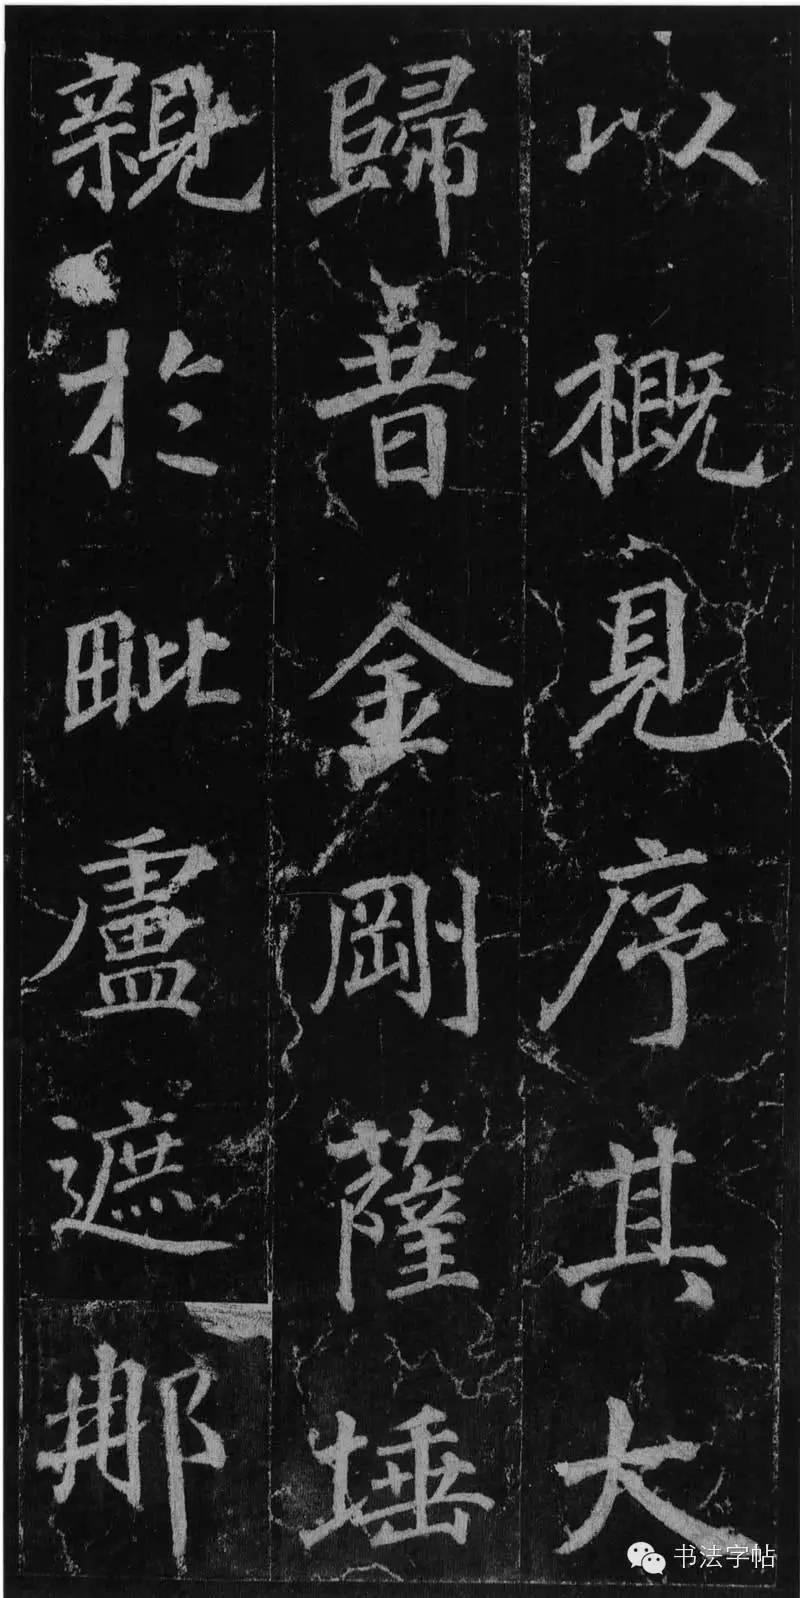 以概見序其大
歸昔金剛薩埵
親於毗盧遮那
书法字帖